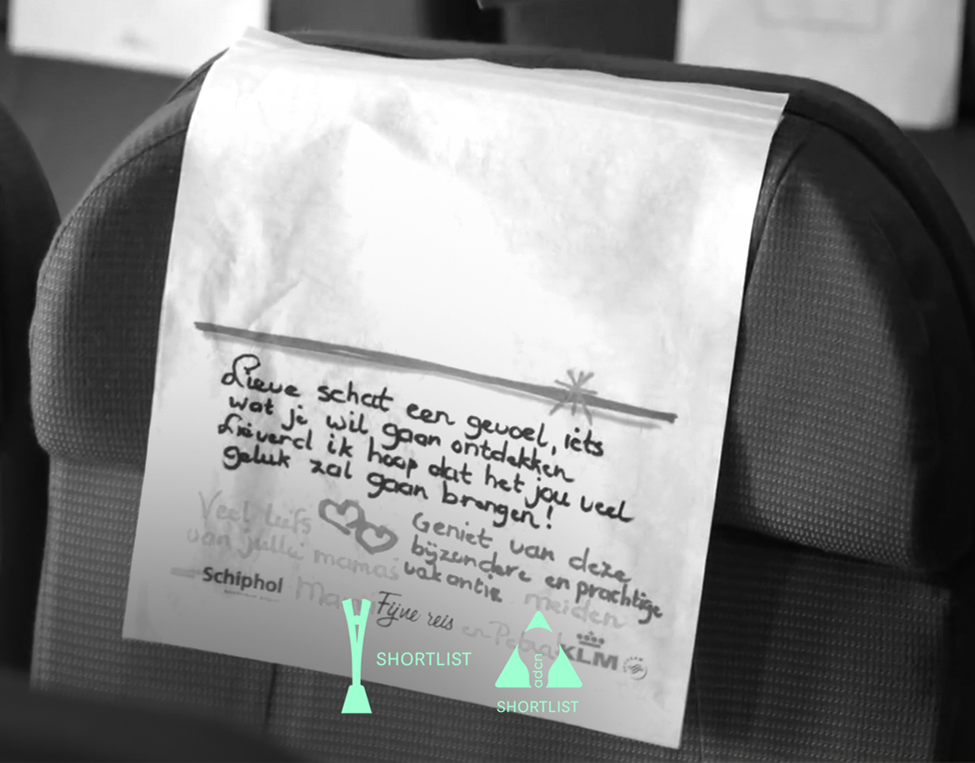 Lieve schat een gevoel, iets
wat je wil gaan ontdekken
Lieverd ik hoop dat het jou veel
geluk zal gaan brengen!
Veel liefs
van jullie mamas
Geniet van deze
bijzondere en prachtige
vakantie meiden
Schiphol
Fijne reis
en Petra
KLM
SHORTLIST
adcn
SHORTLIST